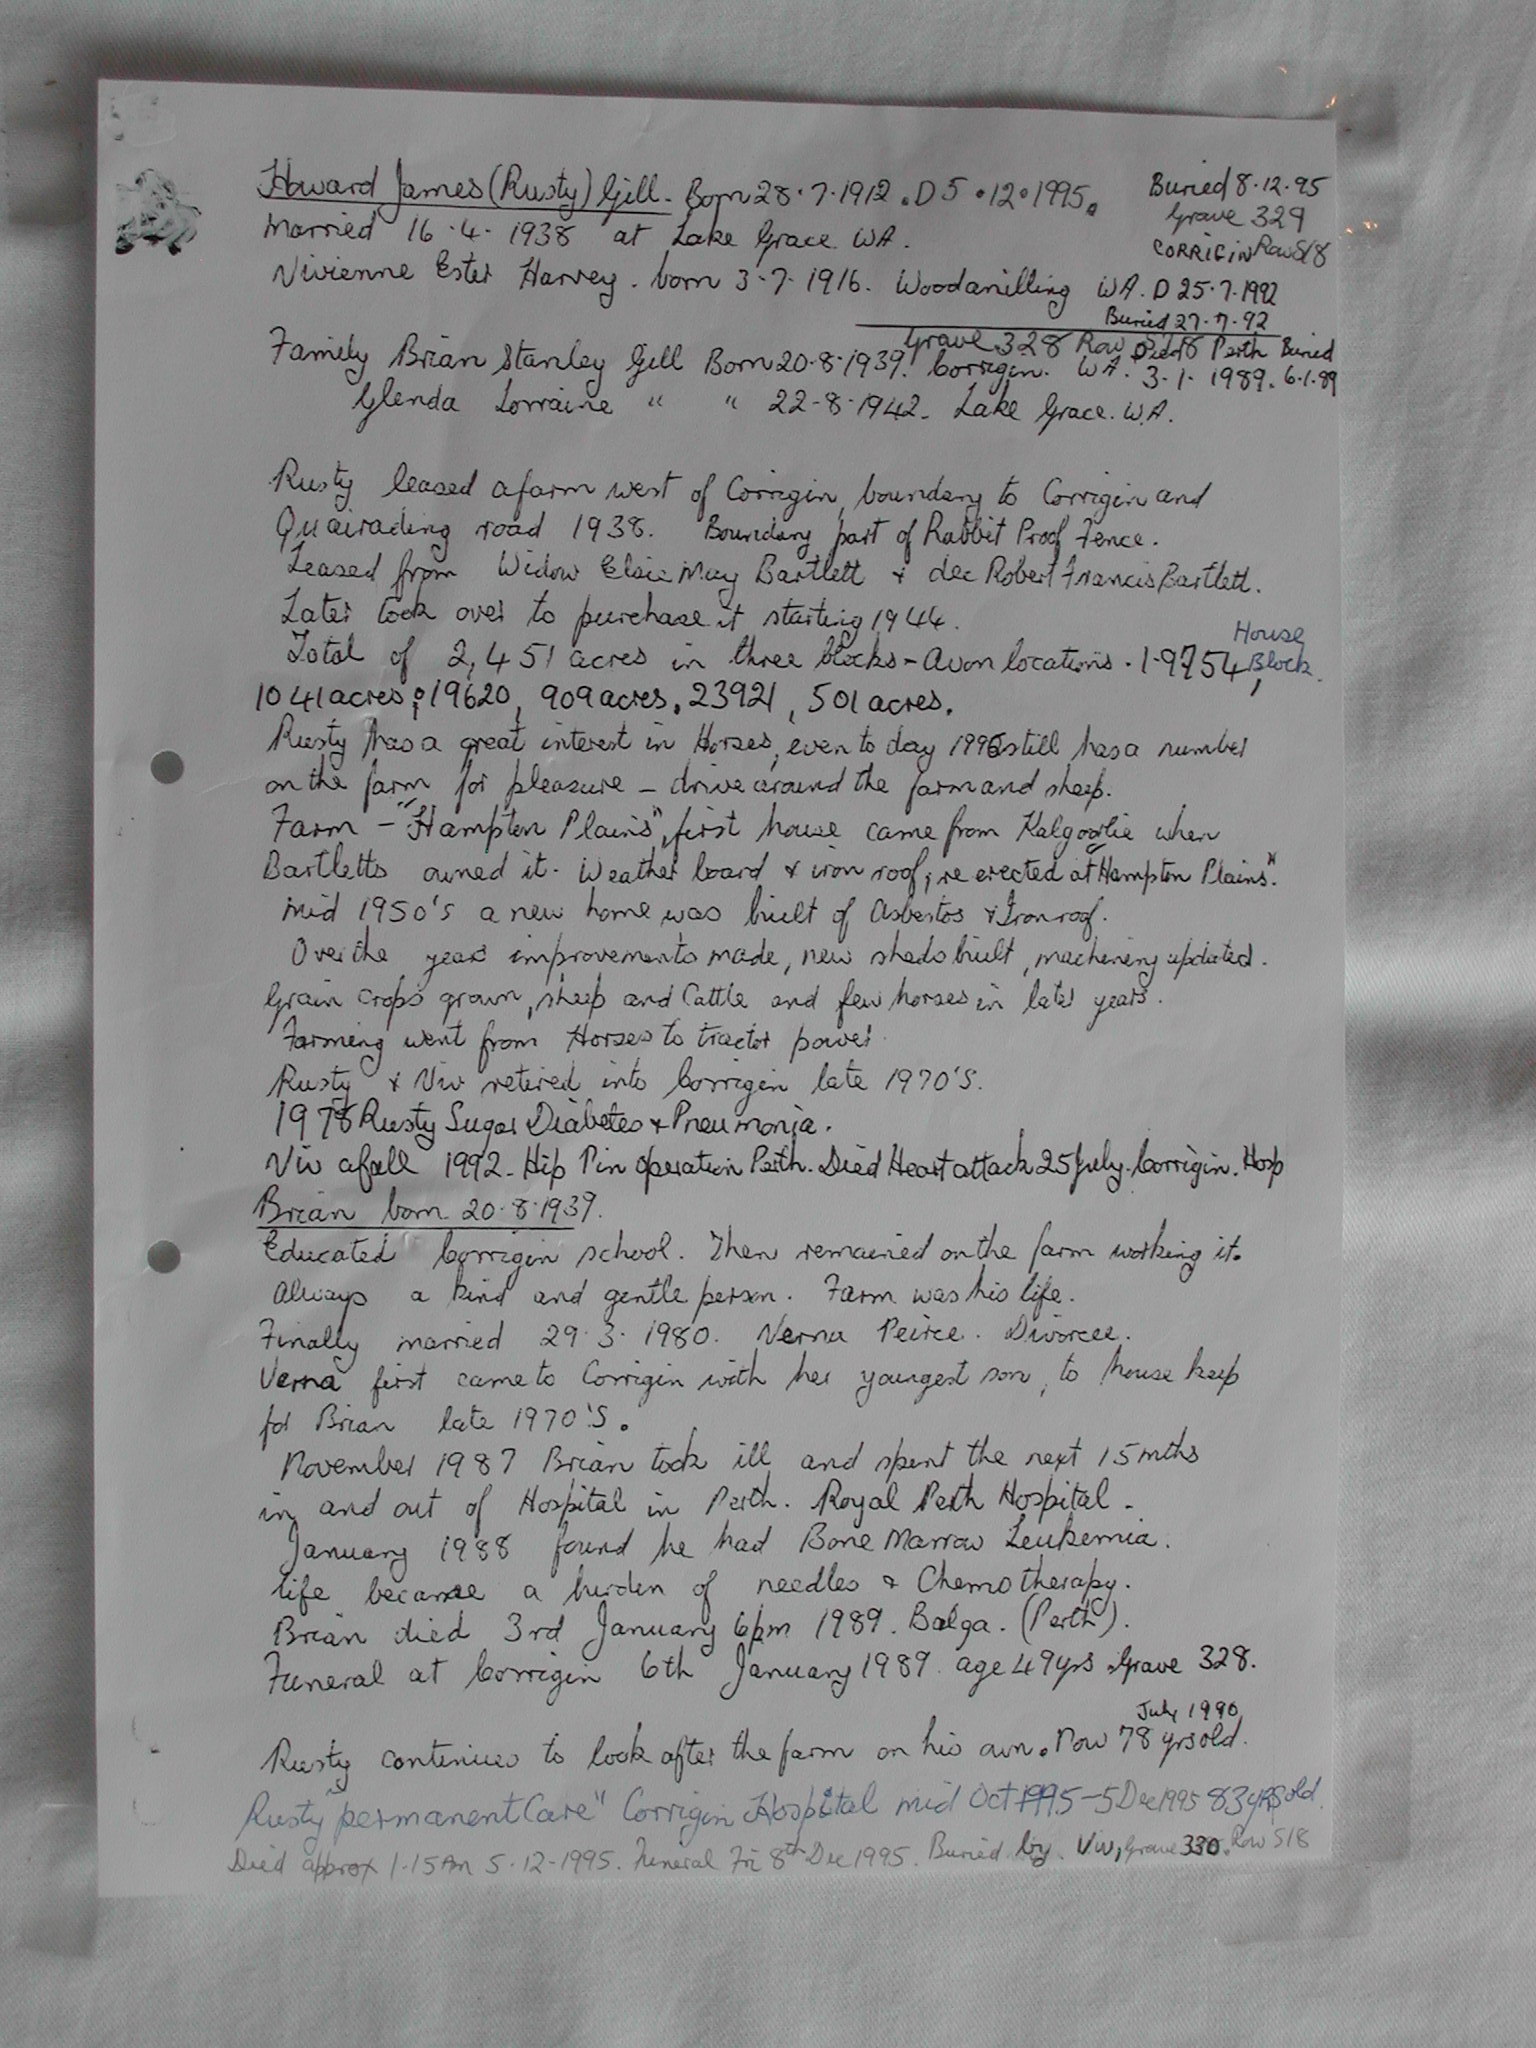 Howard James (Rusty) Gill - Born 28.7.1912. D 5.12.1995.
Buried 8.12.95
Grave 329
CORRIGIN Row S18
Married 16.4.1938 at Lake Grace WA.
Vivienne Ester Harvey. born 3.7.1916. Woodanilling WA. D 25.7.1992
Buried 27.7.92
Grave 328 Row
Family Brian Stanley Gill Born 20.8.1939. Corrigin. WA. Died Perth Buried
3.1.1989. 6.1.89
Glenda Lorraine " " 22-8-1942- Lake Grace. W.A.
Rusty leased a farm west of Corrigin, boundary to Corrigin and
Quairading road 1938. Boundary part of Rabbit Proof Fence.
Leased from Widow Elsie May Bartlett & dec Robert Francis Bartlett.
Later took over to purchase it starting 1944.
Total of 2,451 acres in three blocks - Avon locations. 1-9754, House Block.
1041 acres; 19620, 909 acres. 23921, 501 acres.
Rusty has a great interest in Horses, even to day 1990 still has a number
on the farm for pleasure - drive around the farm and sheep.
Farm - "Hampton Plains", first house came from Kalgoorlie when
Bartletts owned it. Weather board & iron roof, re erected at "Hampton Plains".
Mid 1950's a new home was built of Asbestos & Iron roof.
Over the years improvements made, new sheds built, machinery updated.
Grain crops grown, sheep and Cattle and few horses in later years.
Farming went from Horses to tractor power.
Rusty & Viv retired into Corrigin late 1970'S.
1978 Rusty Sugar Diabetes & Pneumonia.
Viv a fall 1992 - Hip Pin operation Perth. Died Heart attack 25 July. Corrigin. Hosp
Brian born 20.8.1939.
Educated Corrigin school. Then remained on the farm working it.
Always a kind and gentle person. Farm was his life.
Finally married 29.3.1980. Verna Peirce. Divorcee.
Verna first came to Corrigin with her youngest son, to house keep
for Brian late 1970'S.
November 1987 Brian took ill and spent the next 15 mths
in and out of Hospital in Perth. Royal Perth Hospital -
January 1988 found he had Bone Marrow Leukemia.
life became a burden of needles & Chemotherapy.
Brian died 3rd January 6pm 1989. Balga. (Perth).
Funeral at Corrigin 6th January 1989. age 49 yrs. Grave 328.
July 1990
Rusty continues to look after the farm on his own. Now 78 yrs old.
Rusty "permanent Care" Corrigin Hospital mid Oct 1995 - 5 Dec 1995 83 yrs old.
Died approx 1.15 Am 5.12.1995. Funeral Fri 8th Dec 1995. Buried by Viv, Grave 330. Row S18